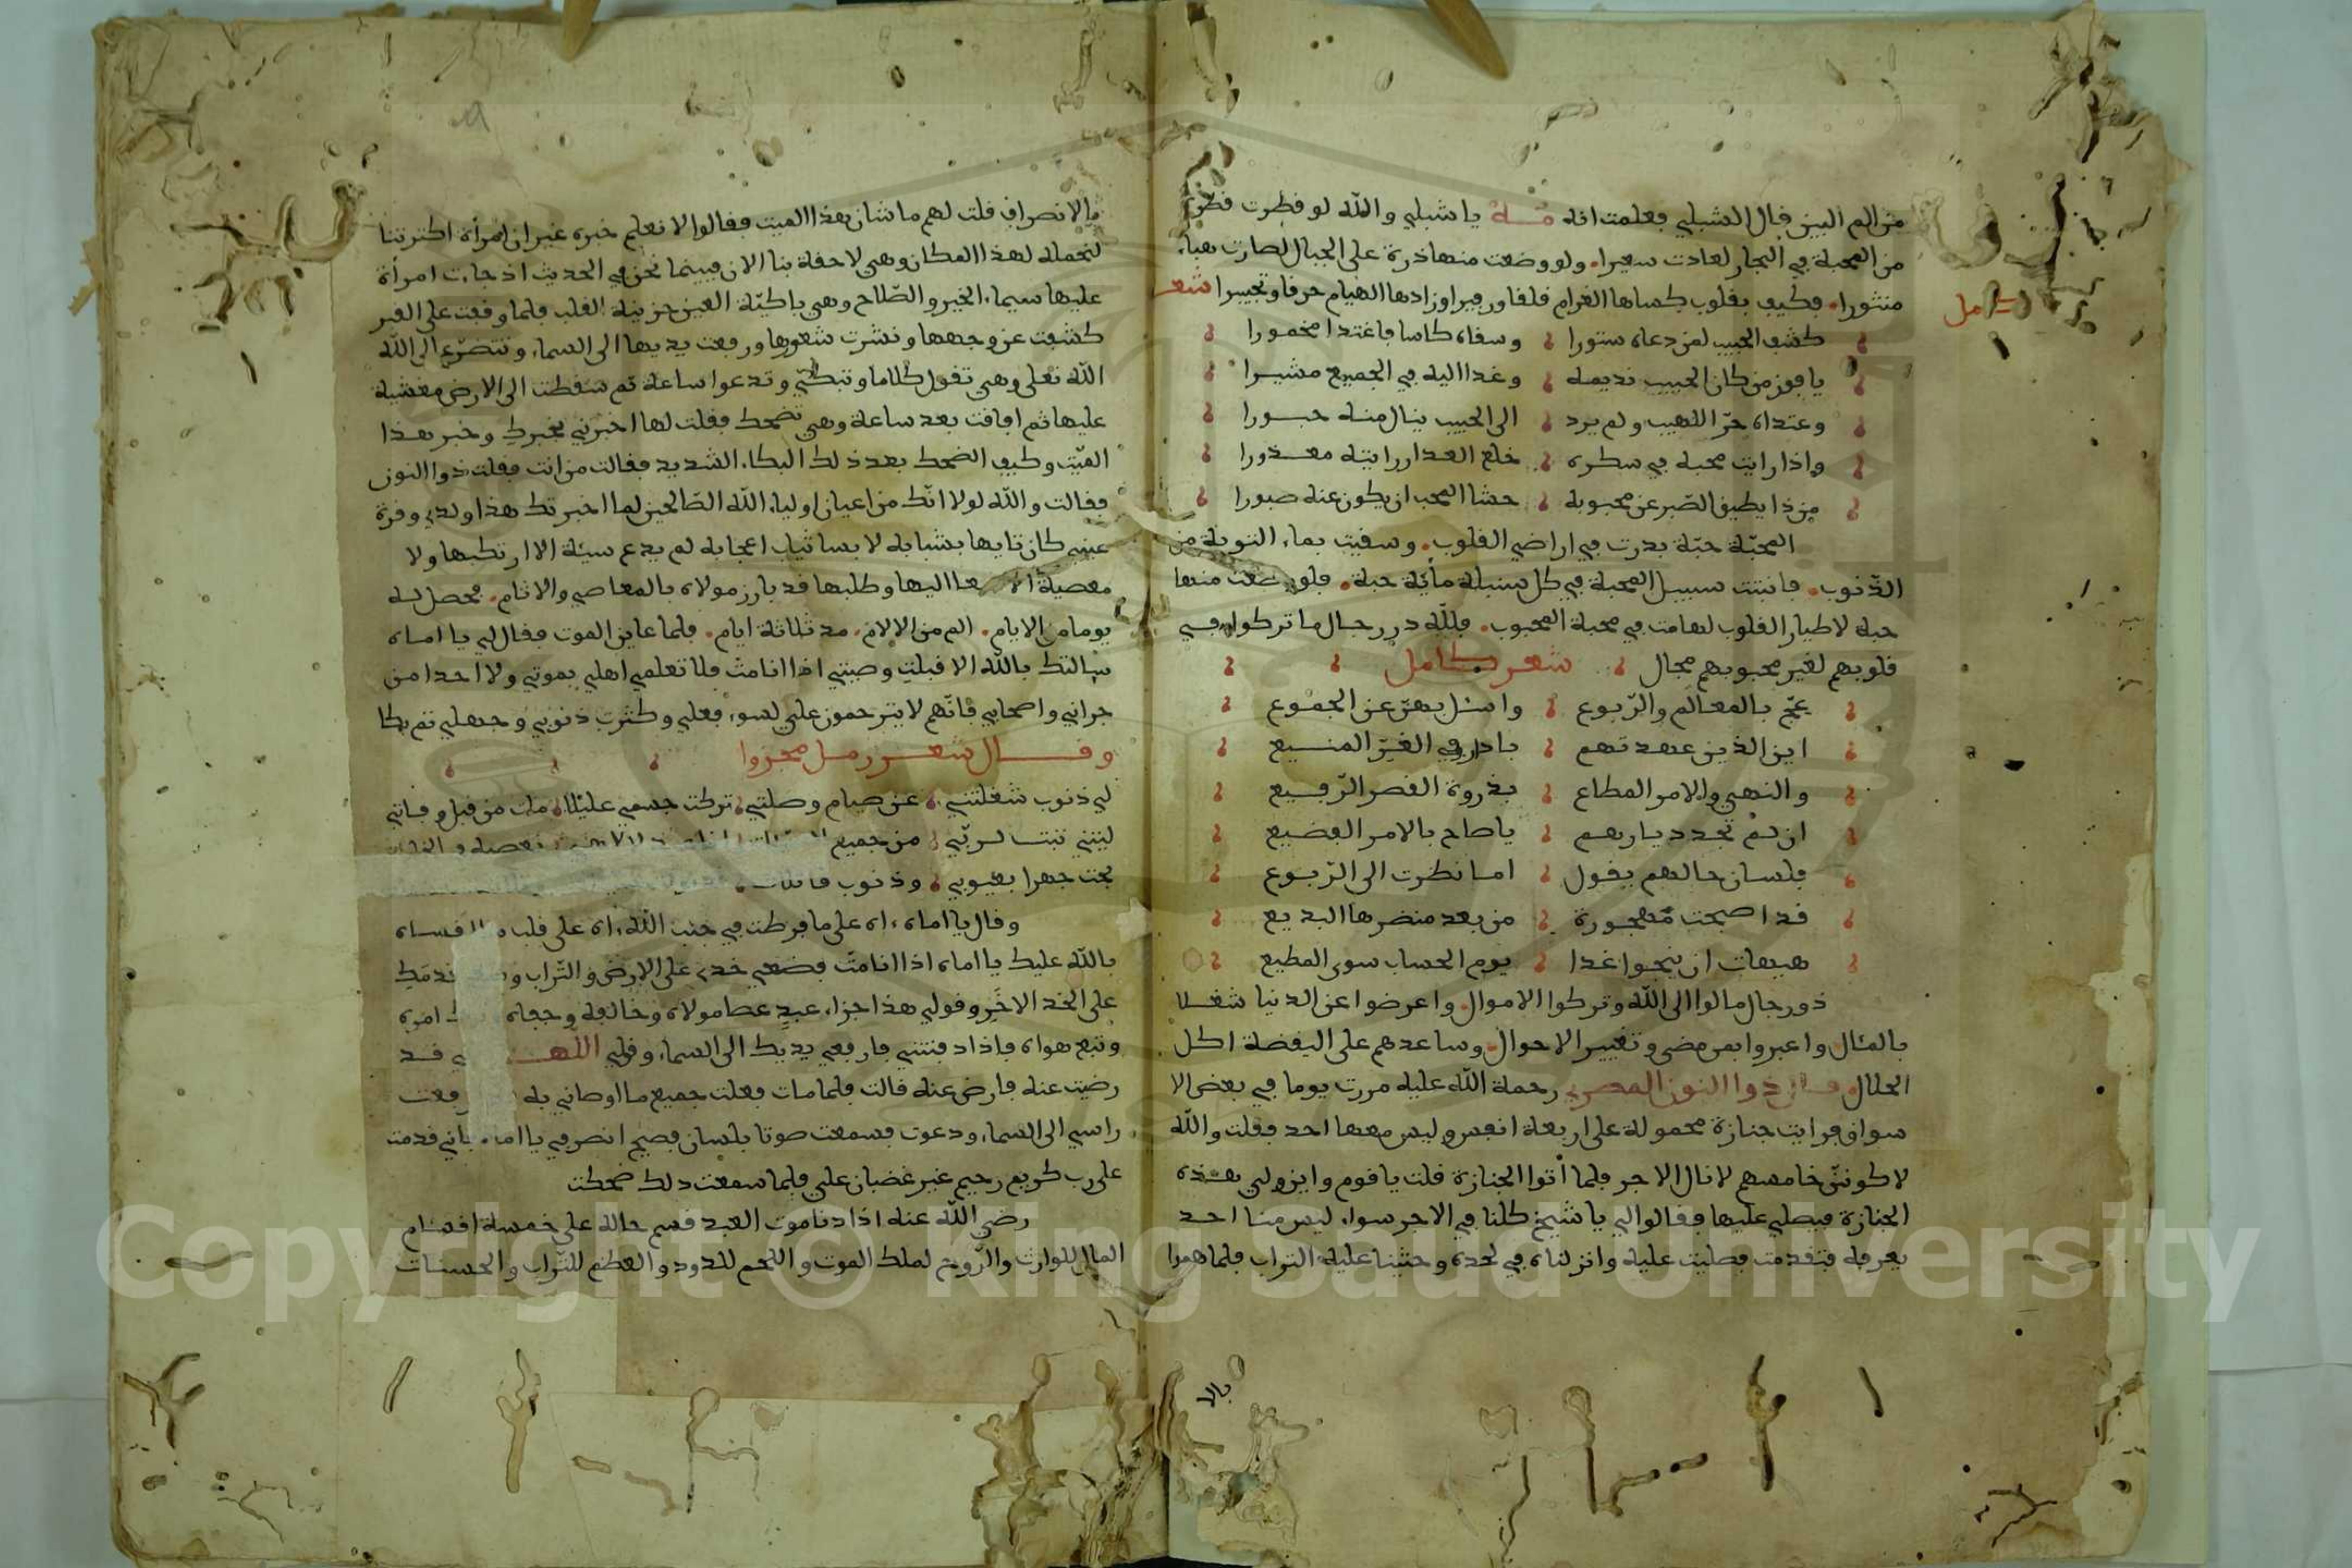 من الم البين فال الشبلي فعلمت انه ياشبلي والله لو فطرت فطرة
من المحبة في البحار لعادت سعيرا. ولو وضعت منها ذرة على الجبال لصارت هباء
منثورا. فكيف بفلوب كساها الغرام فلفا وزفيرا وزادها الهيام حرفا وتحييرا شعر
كامل
كشف الحبيب لمن دعاه ستورا وسفاه كاسا فاغتدا مخمورا
يا فوز من كان الحبيب نديمه وغدا اليه في الجميع مشيرا
وعتداه حرّ اللهيب ولم يرد الى الحبيب ينال منه حبورا
واذا رايت محبه في سكره خلع العدار رايته معذورا
من ذا يطيق الصّبر عن محبوبه حشا المحب ان يكون عنه صبورا
المحبّة حبّة بدرت في اراضي الفلوب. وسفيت بماء التوبة من
الذّنوب. فانبتت سبيل المحبة في كل سنبلة مائة حبة. فلو وضعت منها
حبة لاطيار الفلوب لهامت في محبة المحبوب. فللّه در رجال ما تركوا في
فلوبهم لغير محبوبهم مجال شعر كامل
عجّ بالمعالم والرّبوع واسئل بهن عن الجموع
اين الذين عهدتهم بادارفي الغيّر المنيع
والنهي والامر المطاع بذروة الفصر الرّفيع
ان لم تجدد يارهم ياصاح بالامر الفضيع
فلسان حالهم يفول اما نظرت الى الرّبوع
فد اصبحت مهجورة من بعد منضرها البديع
هيهات ان ينجوا غدا يوم الحساب سوى المطيع
ذو رجال مالوا الى الله وتركوا الاموال. واعرضوا عن الدنيا شغلا
بالمئال. واعبروا بمن مضى وتغيير الاحوال. وساعدهم على اليفضة اكل
الحلال. فال ذوا النون المصري رحمة الله عليه مررت يوما في بعض الا
سواق فرايت جنازة محمولة على اربعة انفس وليس معها احد ففلت والله
لاكوننّ خامسهم لانال الاجر فلما أتوا الجنازة فلت يافوم واين ولي هذه
الجنازة فيصلي عليها ففالوا لي ياشيخ كلنا في الاجر سواء ليس منا احد
يعرفه فتفدمت فصليت عليه وانزلناه في لحده وحثينا عليه التراب فلما هموا
بالا
بالانصراف فلت لهم ما شان هذا الميت ففالوا لا نعلم خبره غير ان امرأة اكترتنا
لنحمله لهذا المكان وهي لاحفة بنا الان فبينما نحن في الحديث اذ جاءت امرأة
عليها سيماء الخير والصّلاح وهي باكيّة العين حزينة الفلب فلما وفعت على الفبر
كشفت عن وجهها ونشرت شعورها ورفعت يديها الى السماء وتتضرّع الى الله
الله تعلى وهي تفول كلاما وتبكي وتدعوا ساعة ثم سفطت الى الارض مغشية
عليها ثم افافت بعد ساعة وهي تضحك ففلت لها اخبريني بخبرك وخبر هذا
الميّت وكيف الضحك بعد ذلك البكاء الشديد ففالت من انت ففلت ذوا النون
ففالت والله لولا انّك من اعيان اولياء الله الصّالحين لما اخبرتك هذا ولدي وفرة
عيني كان تايها بشبابه لابسا ثياب اعجابه لم يدع سيئة الا ارتكبها ولا
معصية الا سعا اليها وطلبها فد بارز مولاه بالمعاصي والاثام. فحصل له
يوما من الايام. الم من الالام. مد ثلاثة ايام. فلما عاين الموت ففال لي يا اماه
سالتك بالله الا فبلت وصيتي اذا انا مت فلا تعلمي اهلي بموتي ولا احدا من
جراني واصحابي فانّهم لا يترحمون علي لسوء فعلي وكثرت ذنوبي وجهلي ثم بكا
وفال شعر رمل مجزوا
لي ذنوب شغلتني عن صيام وصلاتي تركت جسمي عليلا مات من فبل وفاتي
ليتني تبت لربّي من جميع
بحت جهرا بعيوبي وذنوب
وفال يا اماه اه على ما فرطت في جنب الله اه على فلب ما افساه
بالله عليك يا اماه اذا انا متّ فضعي خدي على الارض والتّراب فدمك
على الخد الاخر وفولي هذا جزاء عبد عصا مولاه وخالفه وجفاه امره
وتبع هواه فاذا دفنتني فارفعي يديك الى السماء وفولي اللهم فد
رضيت عنه فارض عنه فالت فلما مات فعلت جميع ما اوصاني به رفعت
راسي الى السماء ودعوت فسمعت صوتا بلسان فصيح انصرفي يا اماه فاني فدمت
على رب كريم رحيم غير غضبان علي فلما سمعت ذلك ضحكت
رضي الله عنه اذا دنا موت العبد فسم حاله على خمسة افسام
المال للوارث والرّوح لملك الموت واللحم للدود والعظم للتّراب والحسنات
Copyright © King Saud University